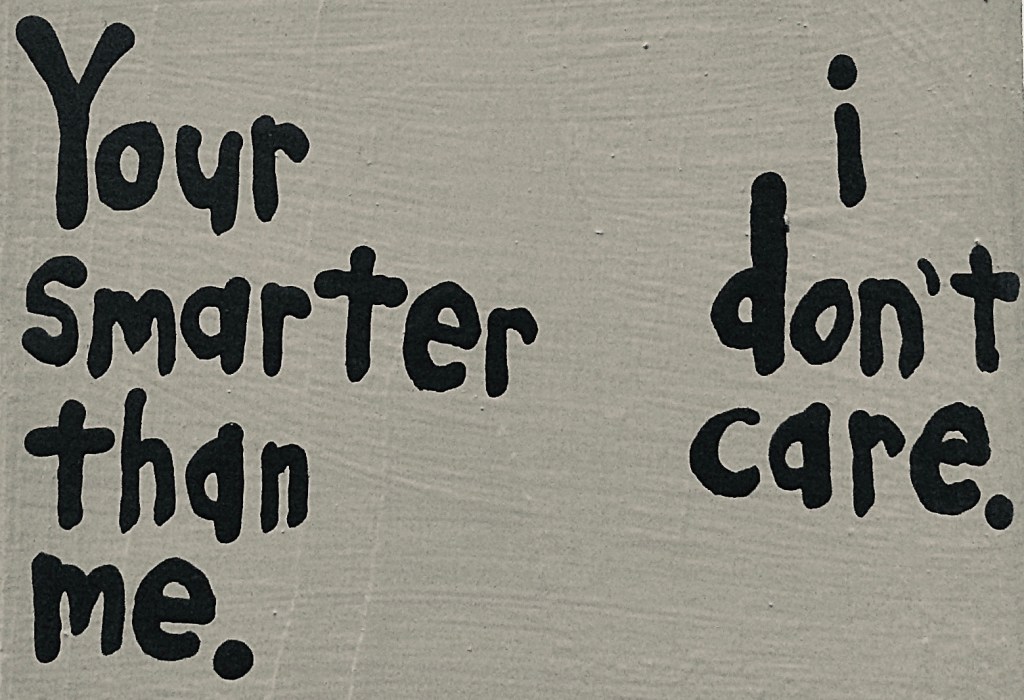 Your
smarter
than
me.
i
don't
care.